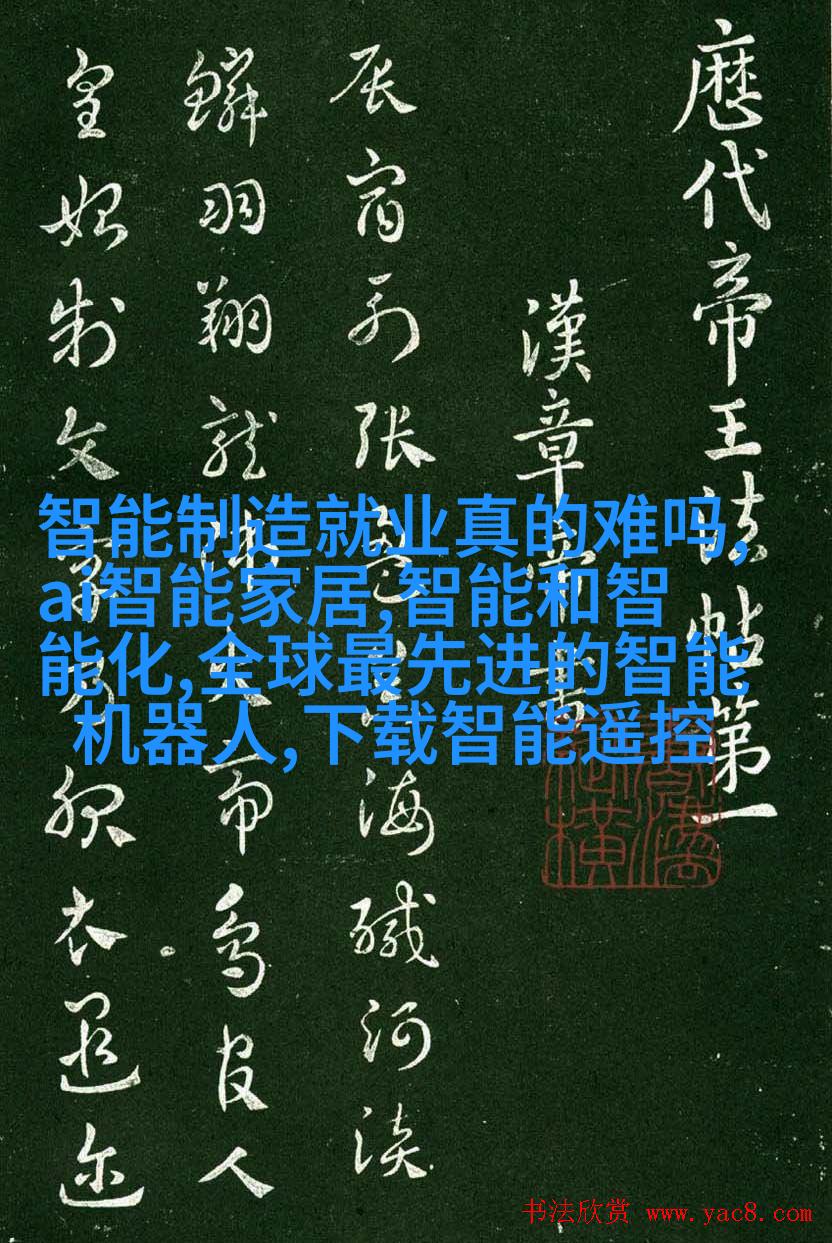 厯代帝王法帖第一
漢章帝書
辰宿列張海醎河淡
鱗羽翔龍師火帝鳥官人
皇始制文字乃服衣遐迩
智能制造就业真的难吗,
ai智能家居,智能和智
能化,全球最先进的智能
机器人,下载智能遥控
书法欣赏 www.yac8.com